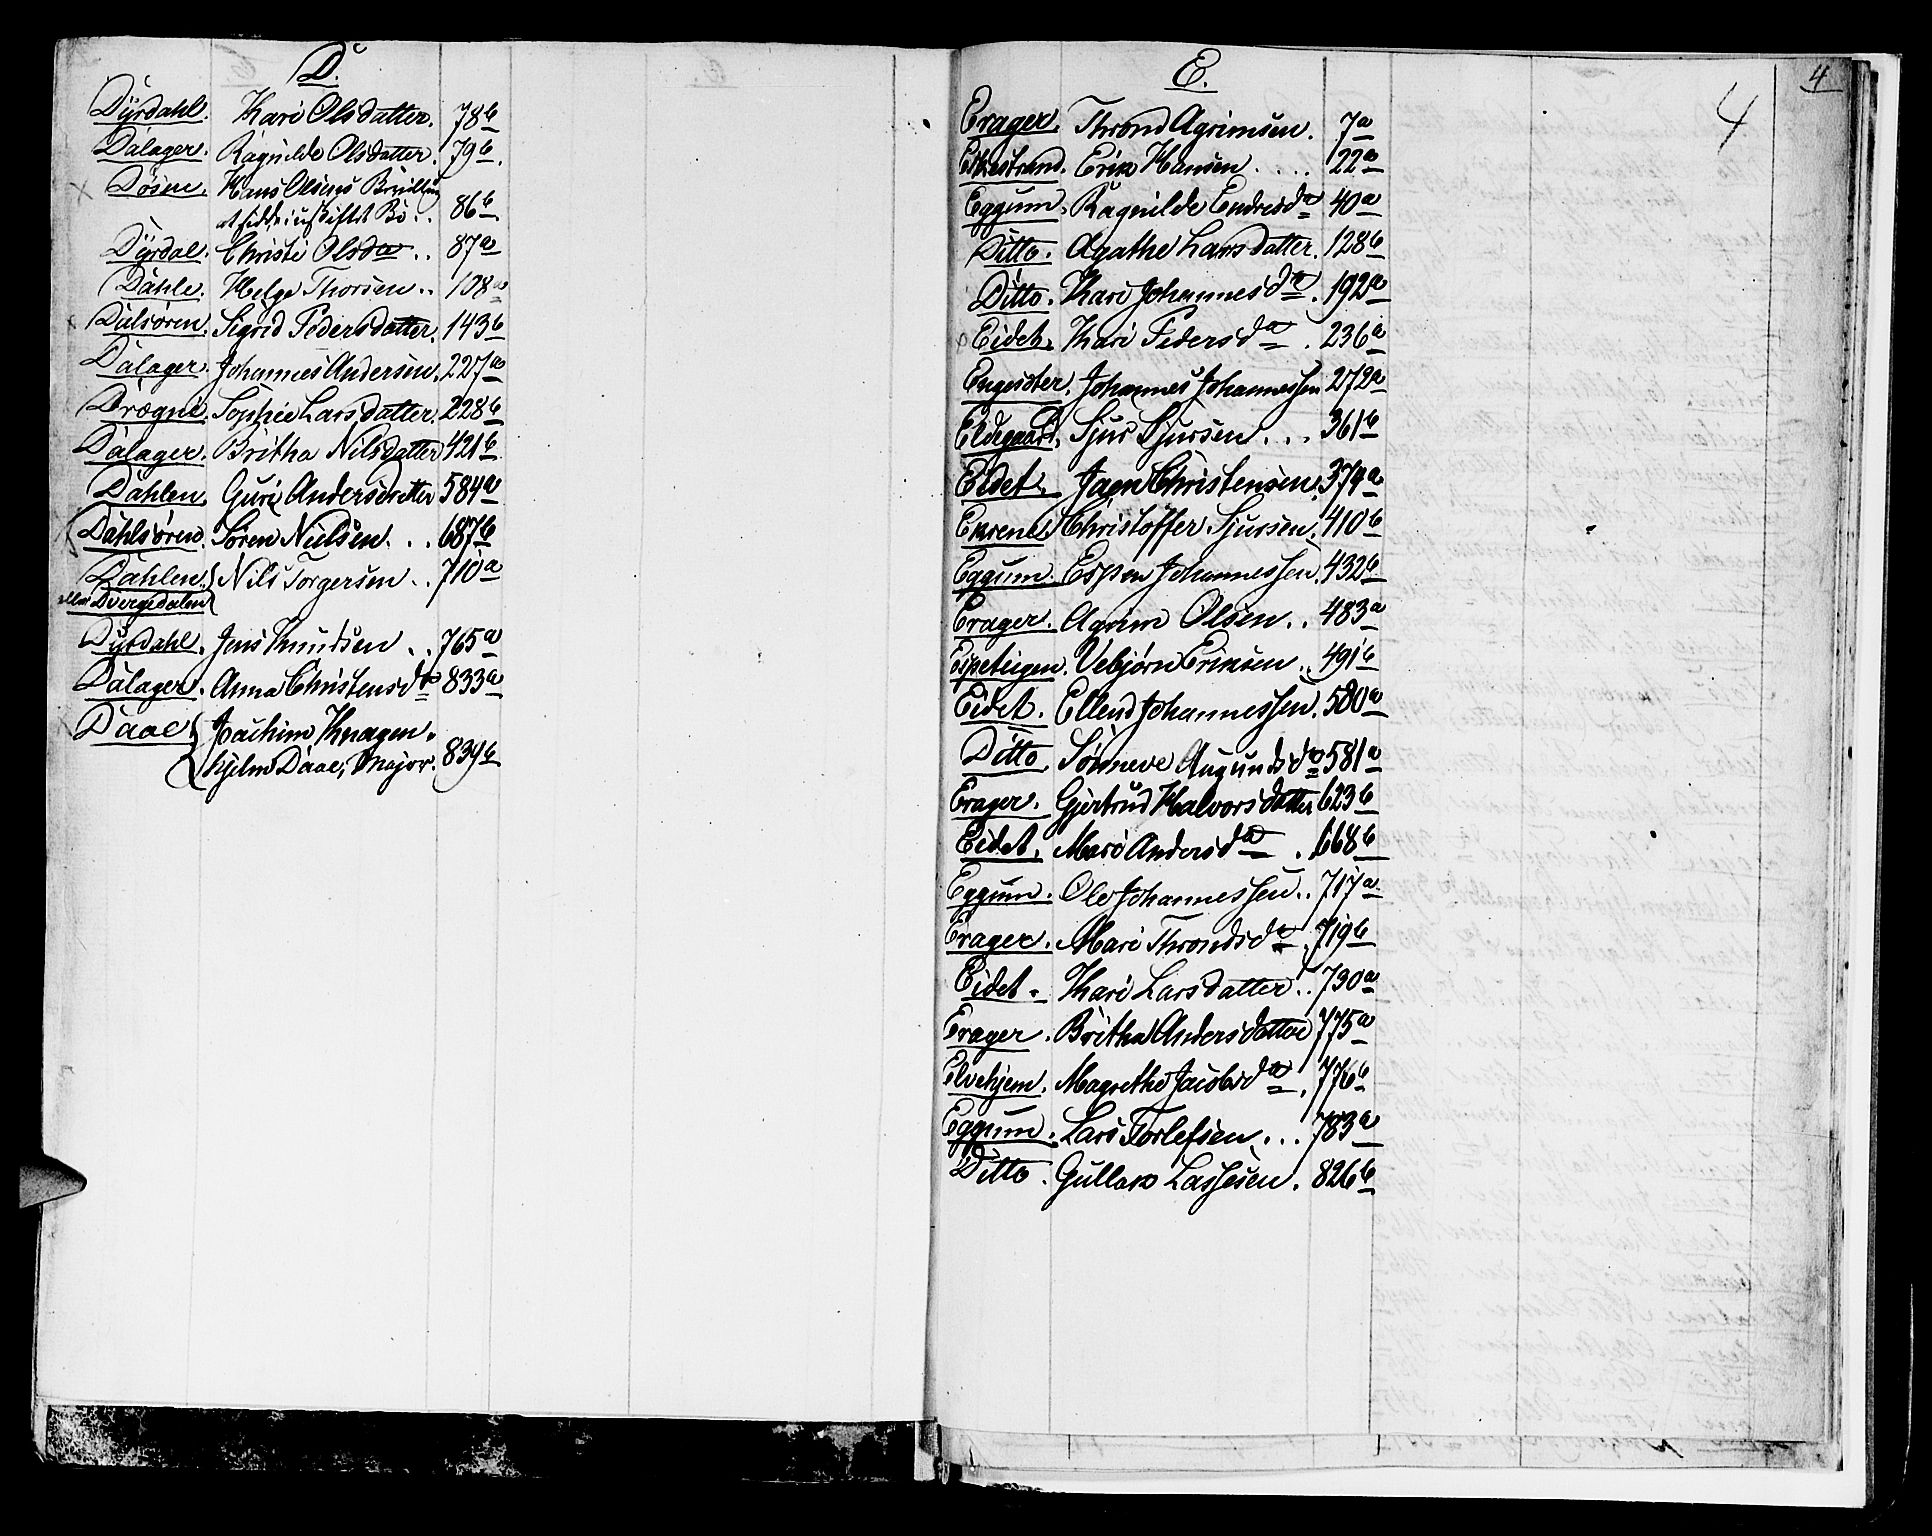 D.
Dyrdahl. Kari Olsdatter. 78b
Dalager. Ragnilde Olsdatter. 79b.
Døsen. Hans Olsens Bevilling
at sidde i uskiftet Bo .. 86b
Dyrdal. Christi Olsda .. 87a
Dahle. Helge Thorsen .. 108a
Dalsøren. Sigrid Pedersdatter. 143b
Dalager. Johannes Andersen. 227a
Drægni. Sophie Larsdatter. 228b
Dalager. Britha Nilsdatter 421b
Dahlen. Guri Andersdatter 584a
Dahlsøren. Søren Nielsen. .. 687b
Dahlen Nils Torgersen .. 710a
eller Dvergedalen
Dyrdahl. Jens Knudsen .. 765a
Dalager. Anna Christensdtr 833a
Daae Joachim Knagen-
hjelm Daae, Major. 839b
E. 4 4
Erager. Thrond Agrimsen. 7a
Eikestrand. Erik Hansen .... 22a
Eggum. Ragnilde Endresda 40a
Ditto. Agathe Larsdatter. 128b
Ditto. Kari Johannesda. 192a
Eidet. Kari Pedersda. 236a
Engesæter. Johannes Johannessen 272a
Eldegaard. Sjur Sjursen ... 361b
Eidet. Jaen Christensen. 374a
Ekrene. Christoffer Sjursen. 410b
Eggum. Espen Johannessen. 432b
Erager. Agrim Olsen .. 483a
Espeteigen. Vebjørn Eriksen .. 491b
Eidet. Ellend Johannessen. 580a
Ditto Sønneve Augundsda 581a
Erager. Gjertrud Halvorsdatter 623b
Eidet. Mari Andersda. 668b
Eggum. Ole Johannessen .. 717a
Erager. Mari Throndsda. 719b
Eidet. Kari Larsdatter .. 730a
Erager. Britha Andersdatter 775a
Elvehjem. Magrethe Jacobsda. 776b
Eggum. Lars Torlefsen ... 783a
Ditto. Gullak Lassesen. 826b